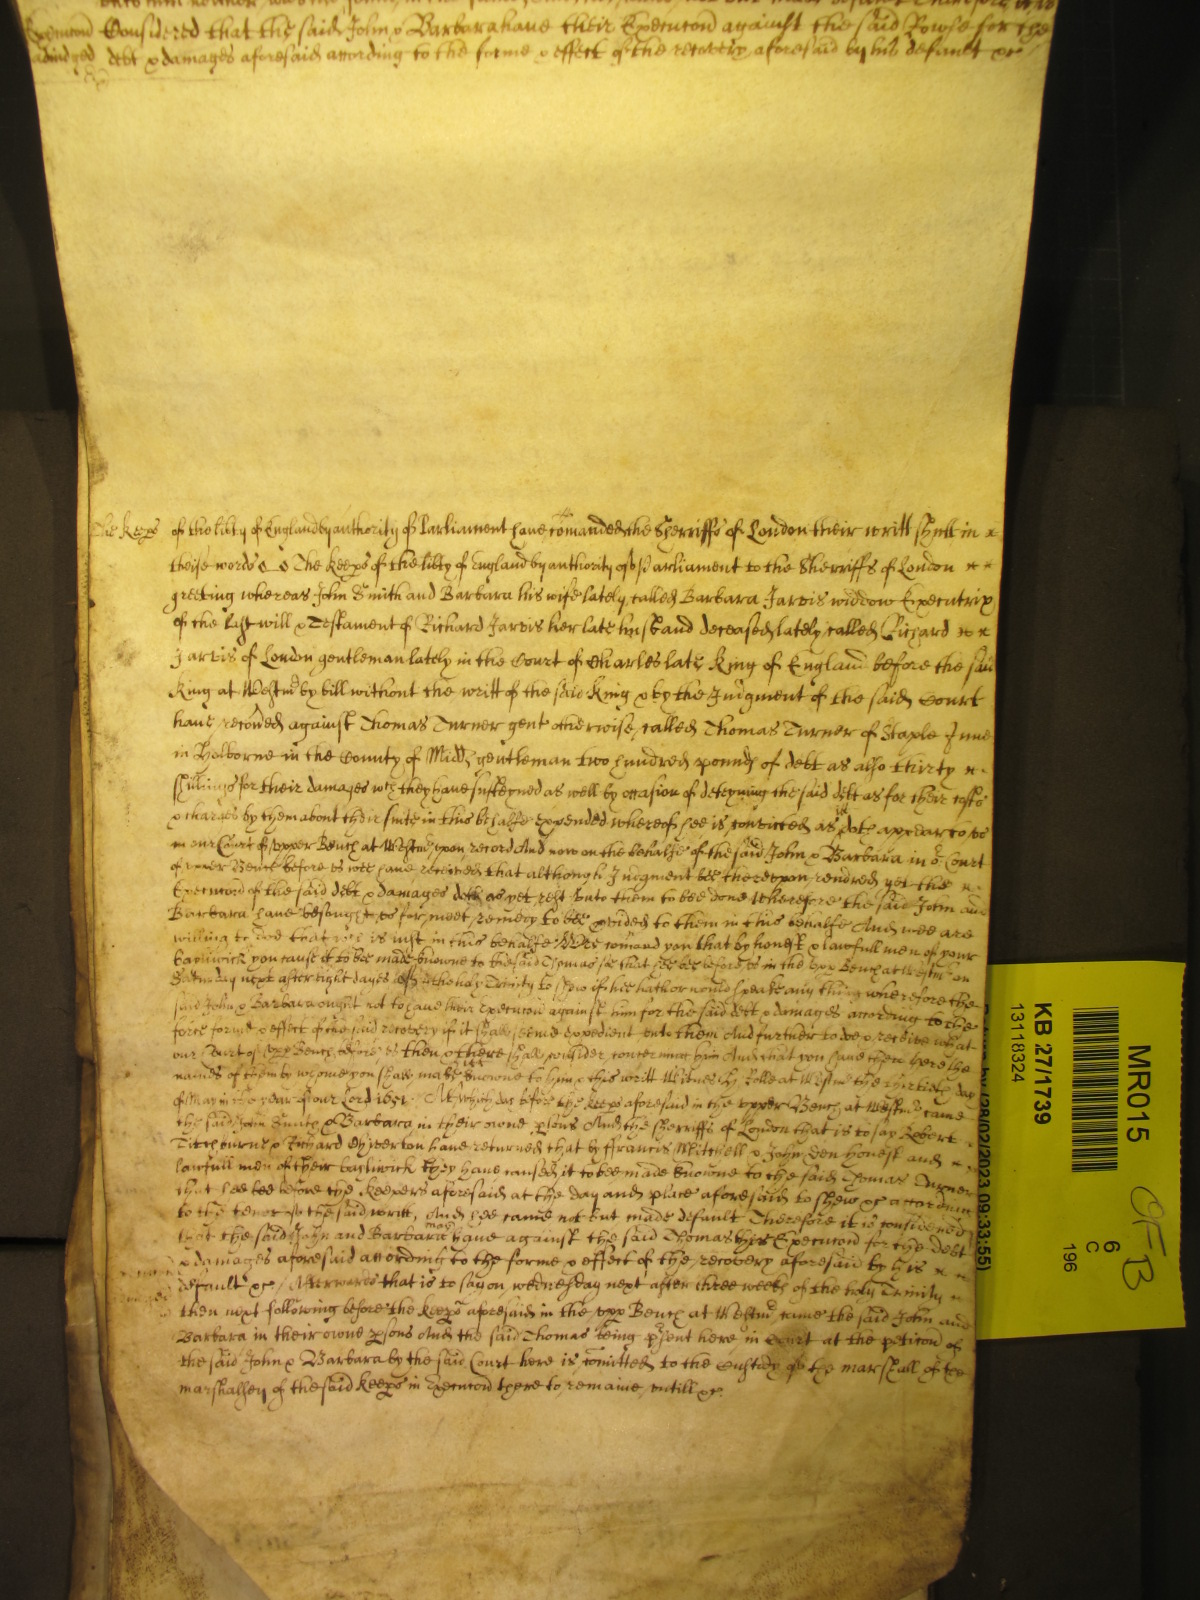 Considered that the said John & Barbara have their Execucon against the said Rowse for the
debt & damages aforesaid according to the forme & effect of the recovery aforesaid by his default &c
Execucon
adiudged
The Keeps of the libty of England by authority of Parliament have comanded the Sherriffs of London their writt shutt in
theise words The Keeps of the libty of England by authority of Parliament to the Sherriffs of London
greeting whereas John Smith and Barbara his wife lately called Barbara Jarvis widdow Executrix
of the last will & Testament of Richard Jarvis her late husband deceased lately called Richard
Jarvis of London gentleman lately in the Court of Charles late King of England before the said
King at Westm by bill without the writt of the said King & by the Judgment of the said Court
have recovred against Thomas Turner gent otherwise called Thomas Turner of Staple Inne
in Holborne in the County of Midd gentleman two hundred pounds of debt as also thirty
shillings for their damages wch they have susteyned as well by occasion of deteyning the said debt as for their costs
& charges by them about their suite in this behalfe expended whereof hee is convicted as doth appeare to us
in our Court of Upper Bench at Westm upon record And now on the behalfe of the said John & Barbara in or Court
of upper Bench before us wee have received that although Judgment bee thereupon rendred yet the
Execucon of the said debt & damages doth as yet rest unto them to bee done Wherefore the said John and
Barbara have besought us for meet remedy to bee pvided to them in this behalfe And wee are
willing to doe that wch is just in this behalfe Wee comand you that by honest & lawfull men of your
bayliwick you cause it to bee made knowne to the said Thomas that hee bee before us in the upp Bench at Westm on
Saturday next after eight dayes of the holy Trinity to shew if hee hath or would speake any thing wherefore the
said John & Barbara ought not to have their Execucon against him for the said debt & damages according to the
force forme & effect of the said recovery if it shall seeme expedient unto them And further to doe & receive what
our Court of upp Bench before us then & there shall consider concerning him And that you have then there the
names of them by whome you shall make it knowne to him & this writt Witnes H Rolle at Westm the thirtieth day
of May in the yeare of our Lord 1651 At which day before the Keeps aforesaid in the upper Bench at Westm came
the said John Smith & Barbara in their owne psons And the sherriffs of London that is to say Robert
Titchburne & Richard Chiverton have returned that by Francis Mitchell & John Den honest and
lawfull men of their bayliwick they have caused it to bee made knowne to the said Thomas Turner
that hee bee before the Keepers aforesaid at the day and place aforesaid to shew &c according
to the tenor of the said writt And hee came not but made default Therefore it is considered
that the said John and Barbara may have against the said Thomas their Execucon for the debt
& damages aforesaid according to the forme & effect of the recovery aforesaid by his
default &c / Afterwards that is to say on wednesday next after three weeks of the holy Trinity
then next following before the Keeps aforesaid in the upp Bench at Westm came the said John and
Barbara in their owne psons And the said Thomas being psent here in Court at the peticon of
the said John & Barbara by the said Court here is comitted to the custody of the marshall of the
marshalsey of the said Keeps in Execucon there to remaine untill &c
28/02/2023 09:33:55)
KB 27/1739
13118324
MR015
6
C
196
CFB